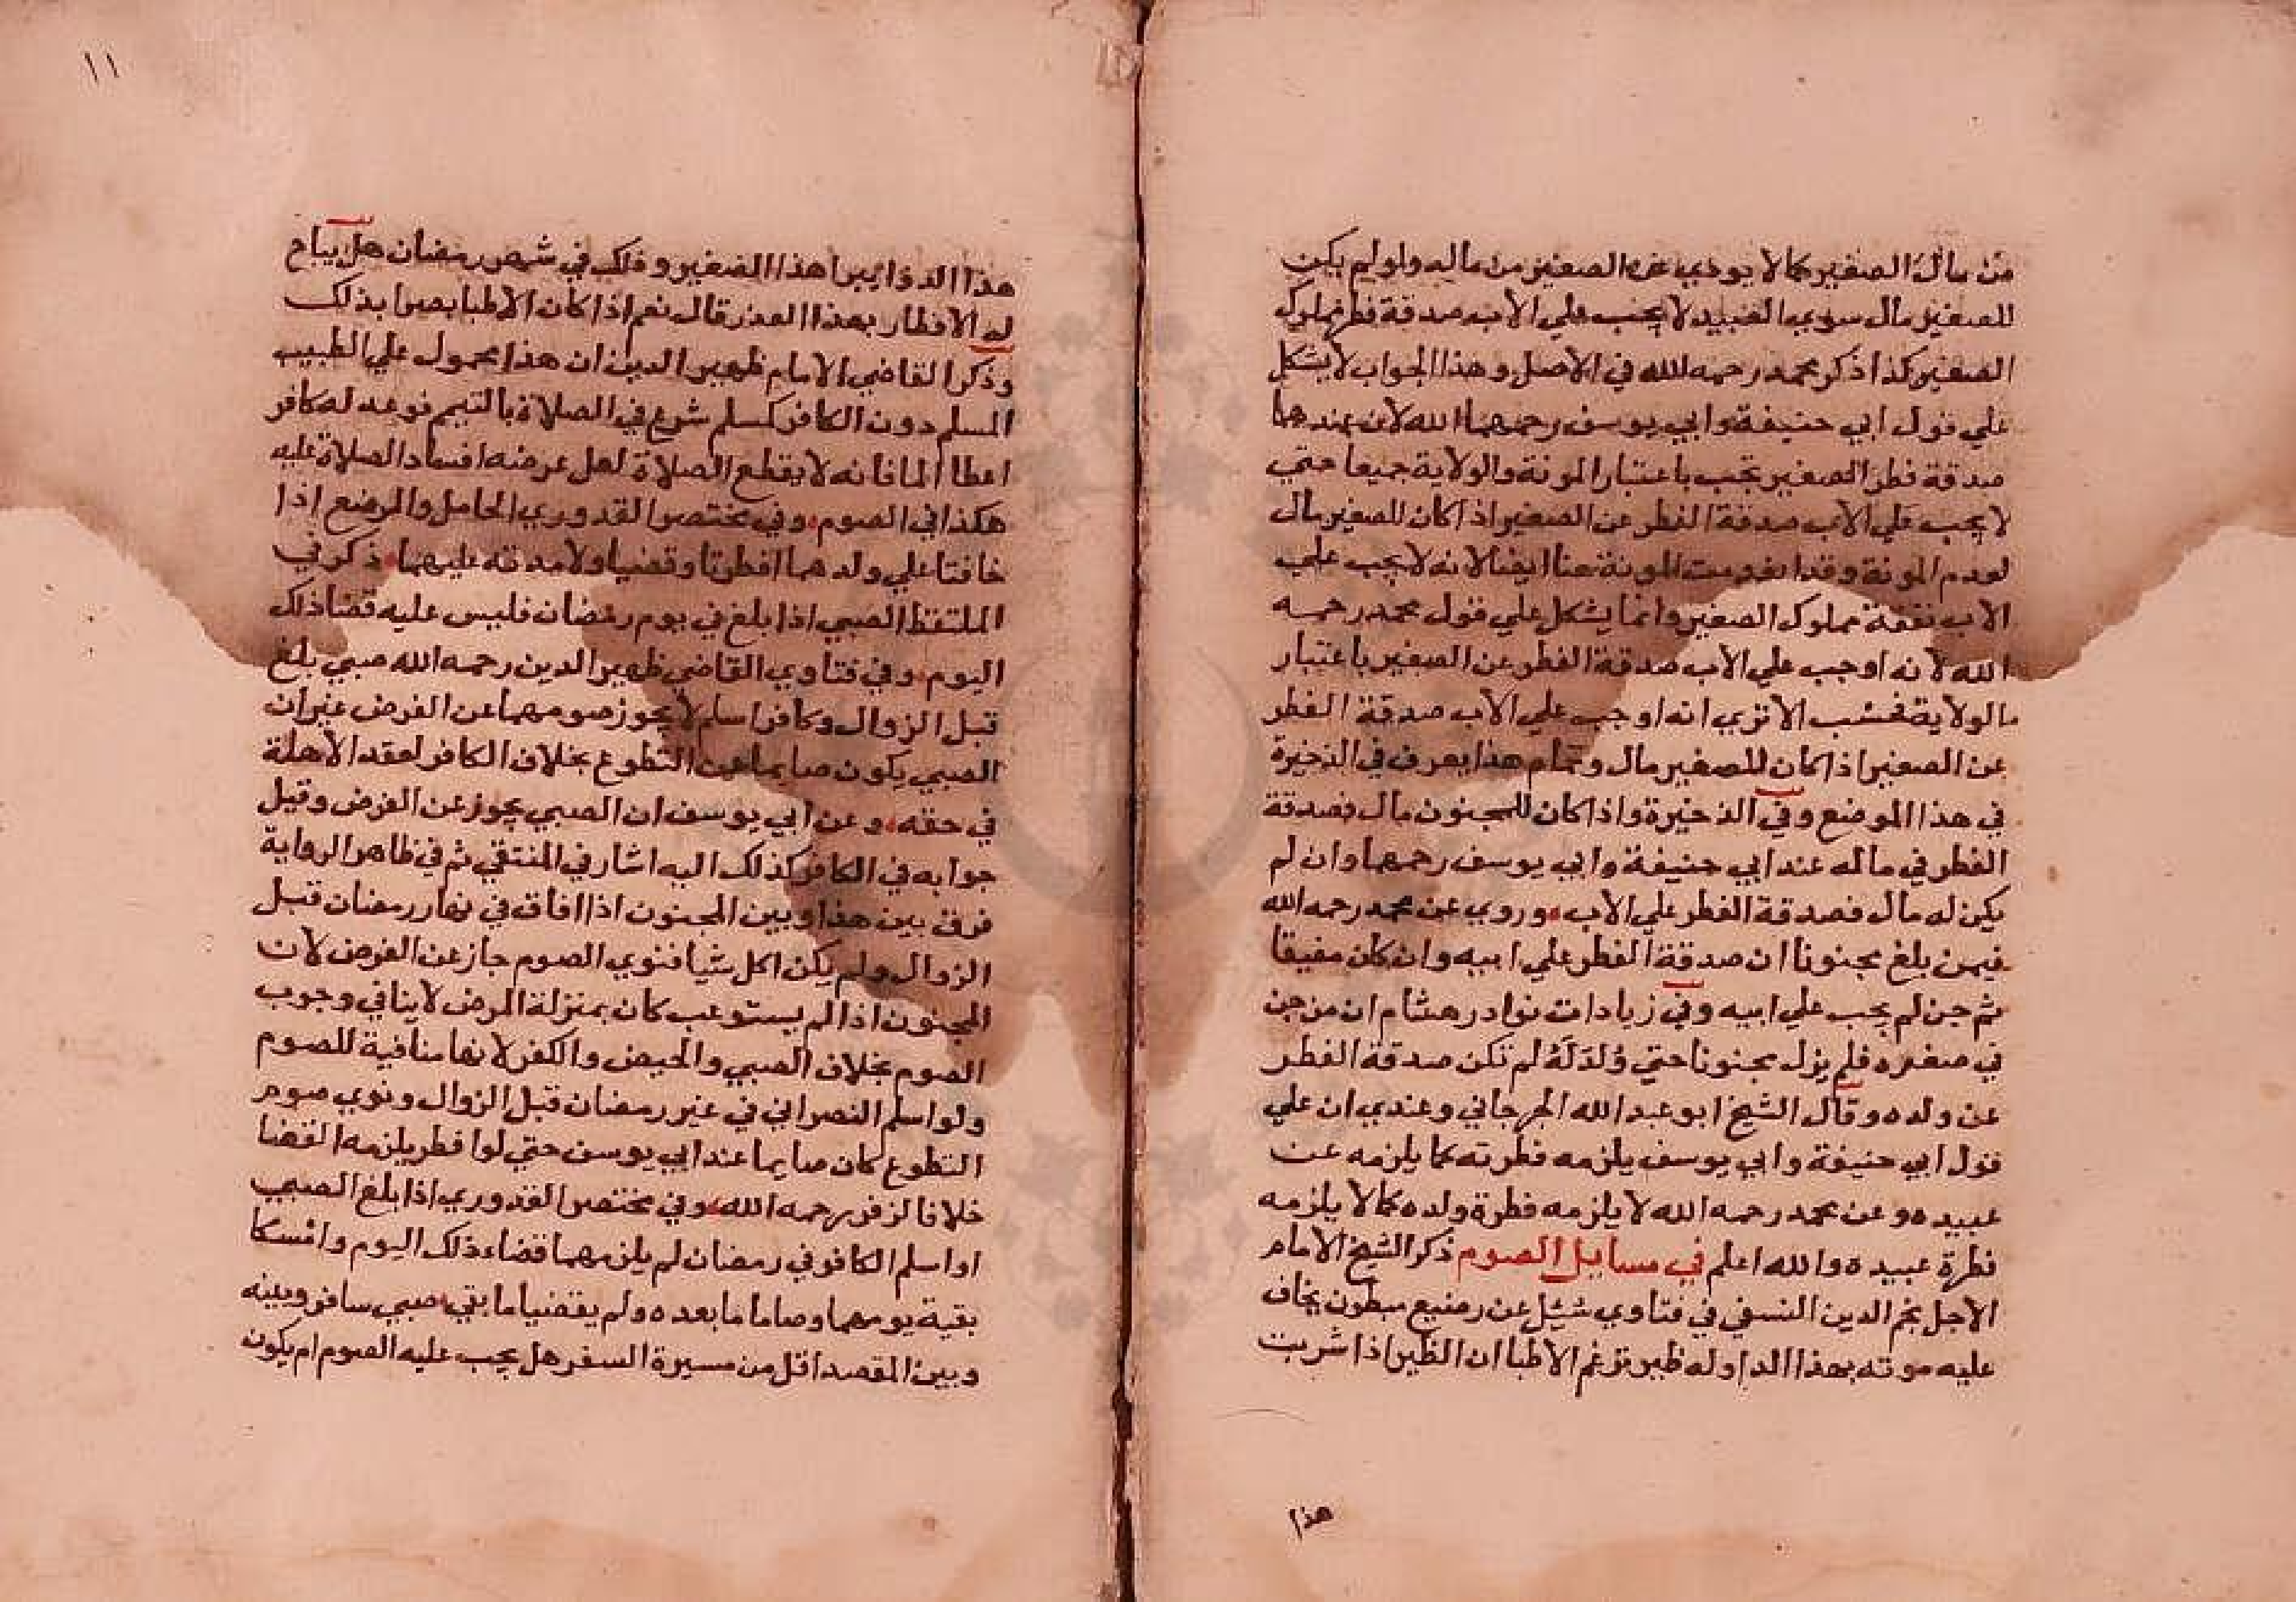 من مال الصغير كما لا يودي عن الصغير من ماله ولو لم يكن
للصغير مال سوي العبيد لا يجب علي الاب صدقة فطر مملوك
الصغير كذا ذكر محمد رحمه الله في الاصل وهذا الجواب لا يشكل
علي قول ابي حنيفة وابي يوسف رحمهما الله لان عندهما
صدقة فطر الصغير تجب باعتبار المونة والولاية جميعا حتي
لا يجب علي الاب صدقة الفطر عن الصغير اذا كان للصغير مال
لعدم المونة وقد انعدمت المونة هنا ايضا لانه لا يجب علي
الاب نفقة مملوك الصغير وانما يشكل علي قول محمد رحمه
الله لانه اوجب علي الاب صدقة الفطر عن الصغير باعتبار
الولاية فحسب الا تري انه اوجب علي الاب صدقة الفطر
عن الصغير اذا كان للصغير مال وتمام هذا يعرف في الذخيرة
في هذا الموضع وفي الذخيرة واذا كان للمجنون مال فصدقة
الفطر في ماله عند ابي حنيفة وابي يوسف رحمهما وان لم
يكن له مال فصدقة الفطر علي الاب وروي عن محمد رحمه الله
فيمن بلغ مجنونا ان صدقة الفطر علي ابيه وان كان مفيقا
ثم جن لم يجب علي ابيه وفي زيادات نوادر هشام ان من جن
في صغره فلم يزل مجنونا حتي وُلدَلَهُ لم تكن صدقة الفطر
عن ولده وقال الشيخ ابو عبد الله الجرجاني وعندي ان علي
قول ابي حنيفة وابي يوسف يلزمه فطرته كما يلزمه عن
عبيده وعن محمد رحمه الله لا يلزمه فطرة ولده كما لا يلزمه
فطرة عبيده والله اعلم في مسايل الصوم ذكر الشيخ الامام
الاجل نجم الدين النسفي في فتاوي سُئِل عن رضيع مبطون يخاف
عليه موته بهذا الدا وله ظير تزعم الاطبا ان الظير اذا شربت
هذا
١١
هذا الدوا يبرا هذا الصغير وذلك في شهر رمضان هل يباح
له الافطار بهذا العذر قال نعم اذا كان الاطبا بصرا بذلك
وذكر القاضي الامام ظهير الدين ان هذا محمول علي الطبيب
المسلم دون الكافر كمسلم شرع في الصلاة بالتيمم فوعد له كافر
اعطا الما فانه لا يقطع الصلاة لعل غرضه افساد الصلاة عليه
هكذا في الصوم وفي مختصر القدوري الحامل والمرضع اذا
خافتا علي ولدهما افطرتا وقضيا ولا فدية عليهما ذكر في
الملتقط الصبي اذا بلغ في يوم رمضان فليس عليه قضا ذلك
اليوم وفي فتاوي القاضي ظهير الدين رحمه الله صبي بلغ
قبل الزوال وكافر اسلم لا يجوز صومهما عن الفرض غير ان
الصبي يكون صايما عن التطوع بخلاف الكافر لفقد الاهلة
في حقه وعن ابي يوسف ان الصبي يجوز عن الفرض وقيل
جوابه في الكافر كذلك اليه اشار في المنتقي ثم في ظاهر الرواية
فرق بين هذا وبين المجنون اذا افاق في نهار رمضان قبل
الزوال ولم يكن اكل شيا فنوي الصوم جاز عن الفرض لان
المجنون اذا لم يستوعب كان بمنزلة المرض لا ينافي وجوب
الصوم بخلاف الصبي والحيض والكفر لانها منافية للصوم
ولو اسلم النصراني في غير رمضان قبل الزوال ونوي صوم
التطوع كان صايما عند ابي يوسف حتي لو افطر يلزمه القضا
خلافا لزفر رحمه الله وفي مختصر القدوري اذا بلغ الصبي
او اسلم الكافر في رمضان لم يلزمهما قضاء ذلك اليوم وامسكا
بقية يومهما وصاما ما بعده ولم يقضيا ما بقي صبي سافر وبينه
وبين المقصد اقل من مسيرة السفر هل يجب عليه الصوم ام يكون